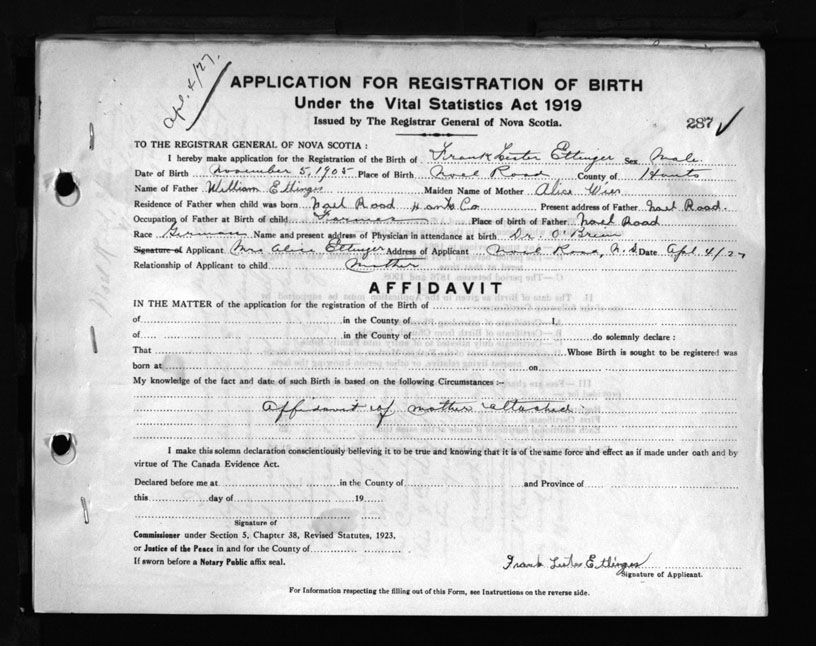 Apl. 4/27.
APPLICATION FOR REGISTRATION OF BIRTH
Under the Vital Statistics Act 1919
Issued by The Registrar General of Nova Scotia.
287 ✓
TO THE REGISTRAR GENERAL OF NOVA SCOTIA :
I hereby make application for the Registration of the Birth of Frank Lester Ettinger Sex Male
Date of Birth November 5, 1905 Place of Birth Noel Road, County of Hants
Name of Father William Ettinger Maiden Name of Mother Alice Wier
Residence of Father when child was born Noel Road Hants Co Present address of Father Noel Road.
Occupation of Father at Birth of child Farmer Place of birth of Father Noel Road
Race German Name and present address of Physician in attendance at birth Dr. O'Brien
Signature of Applicant Mrs Alice Ettinger Address of Applicant Noel Road, N.S. Date Apl 4/27
Relationship of Applicant to child Mother
AFFIDAVIT
IN THE MATTER of the application for the registration of the Birth of
of in the County of I,
of in the County of do solemnly declare :
That Whose Birth is sought to be registered was
born at on
My knowledge of the fact and date of such Birth is based on the following Circumstances :-
Affidavit of mother attached.
I make this solemn declaration conscientiously believing it to be true and knowing that it is of the same force and effect as if made under oath and by
virtue of The Canada Evidence Act.
Declared before me at in the County of and Province of
this day of 19
Signature of
Commissioner under Section 5, Chapter 38, Revised Statutes, 1923,
or Justice of the Peace in and for the County of
If sworn before a Notary Public affix seal.
Frank Lester Ettinger
Signature of Applicant.
For Information respecting the filling out of this Form, see Instructions on the reverse side.